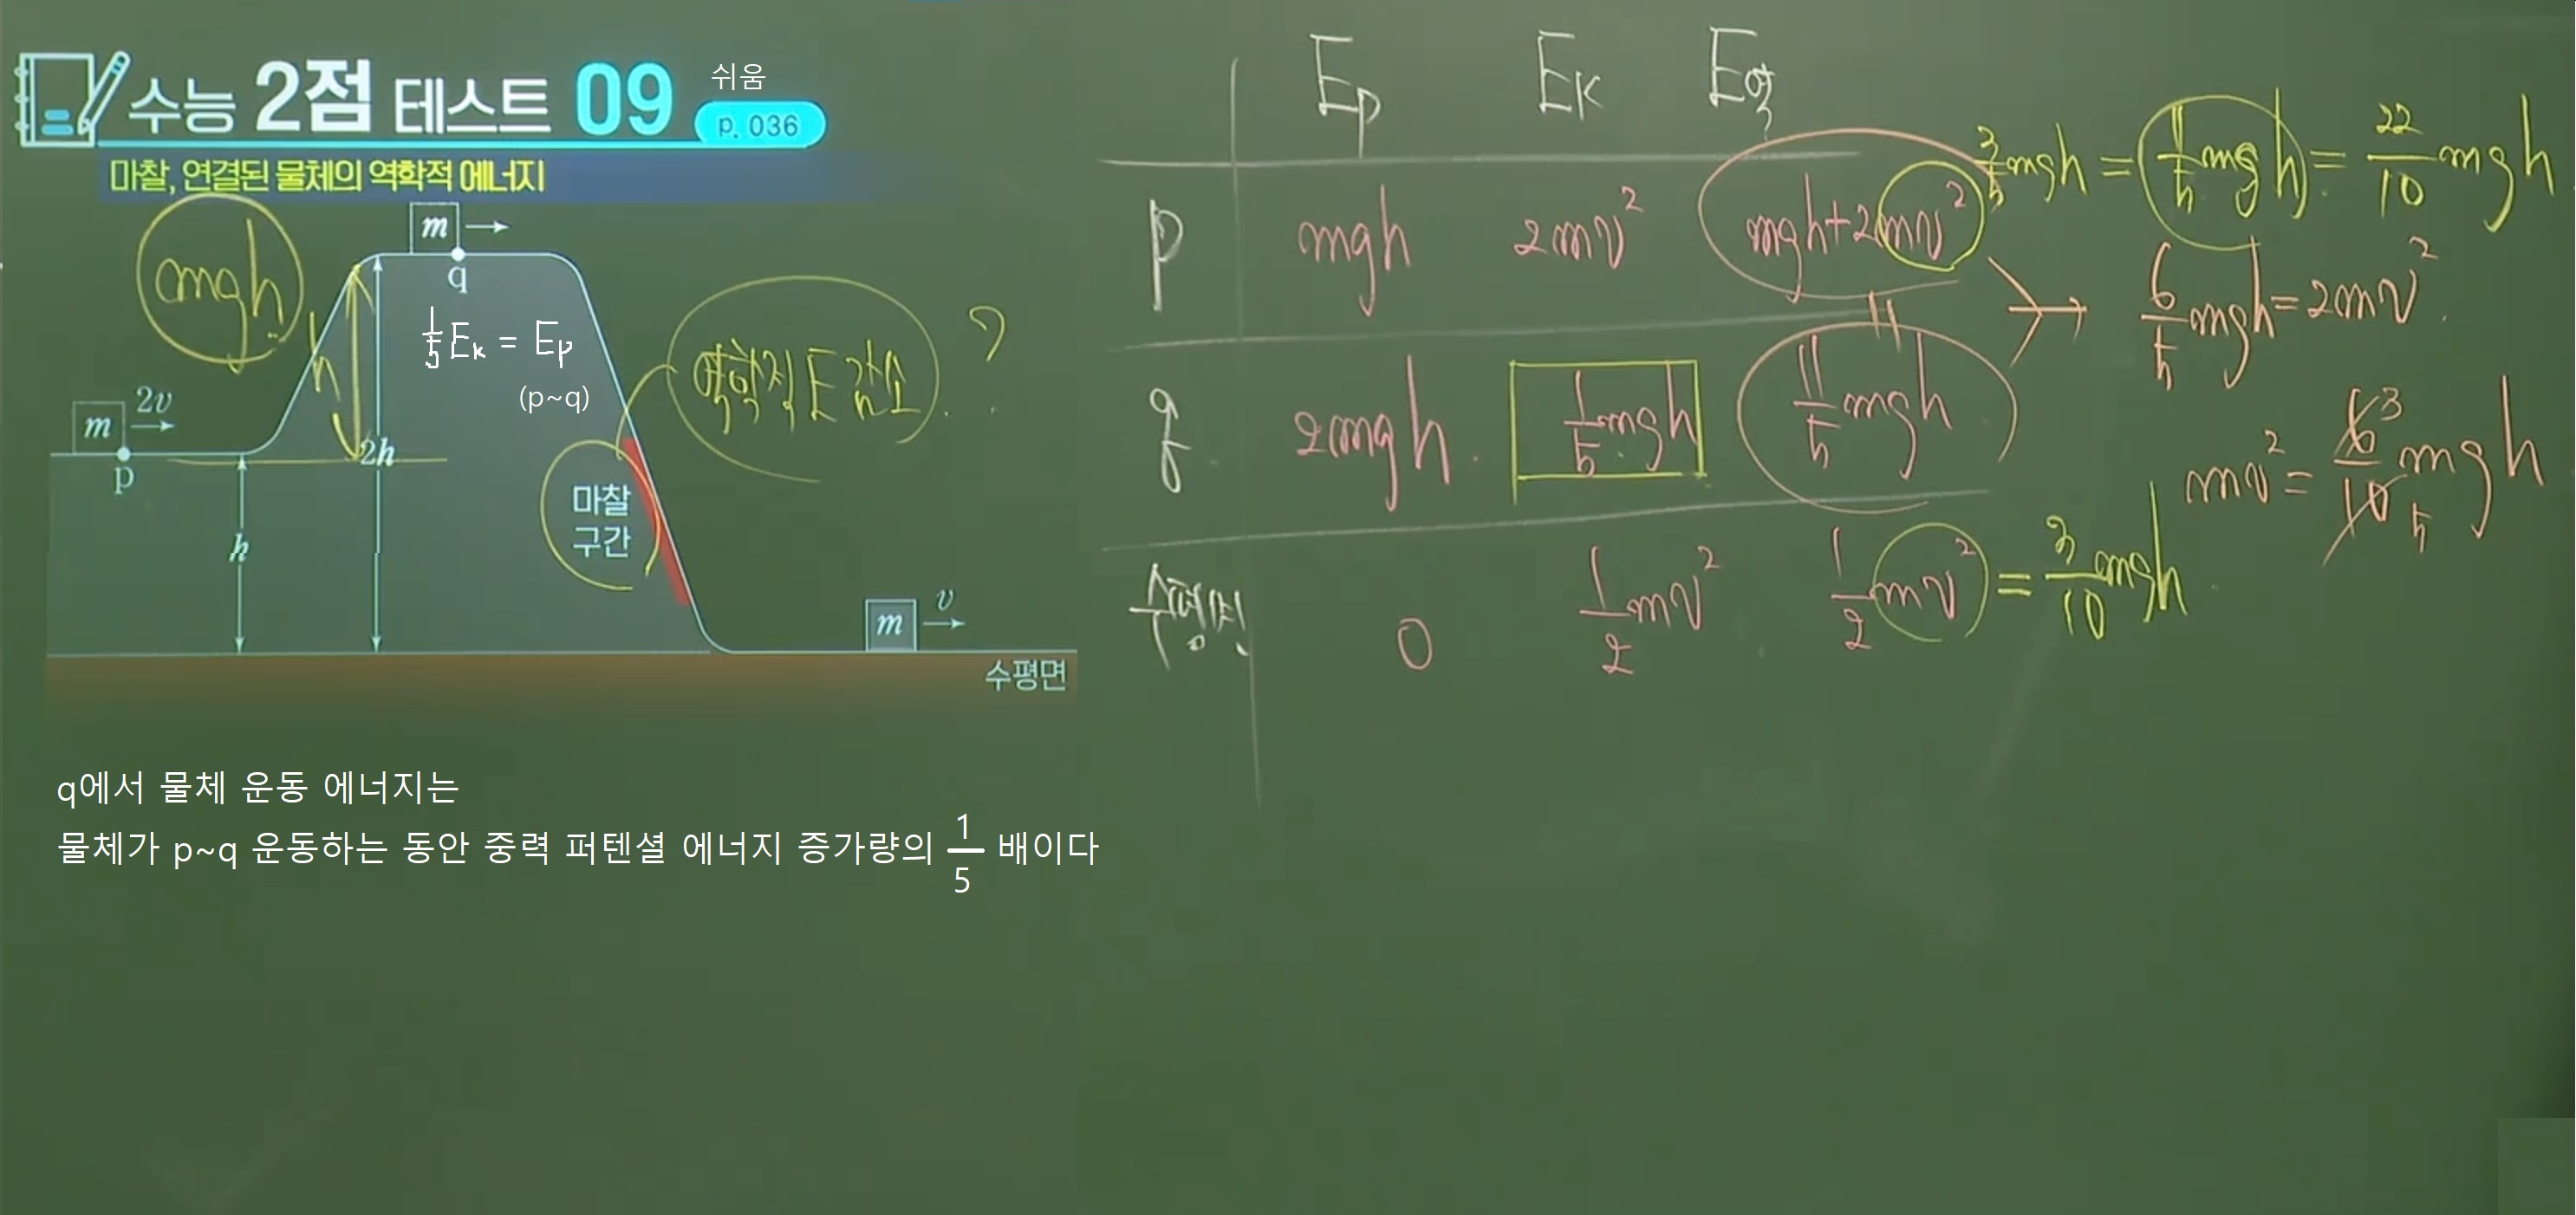 수능 2점 테스트 09
쉬움
p. 036
마찰, 연결된 물체의 역학적 에너지
mgh
m
q
h
1/5 Ek = Ep
(p~q)
역학적 E 감소 ?
m
2v
p
2h
h
마찰
구간
m
v
수평면
q에서 물체 운동 에너지는
물체가 p~q 운동하는 동안 중력 퍼텐셜 에너지 증가량의 1/5 배이다
Ep Ek E역
p mgh 2mv² mgh+2mv²
q 2mgh 1/5 mgh 11/5 mgh
수평면 0 1/2 mv² 1/2 mv² = 3/10 mgh
3/5 mgh = 11/5 mgh = 22/10 mgh
6/5 mgh = 2mv²
mv² = 6/10 3/5 mgh